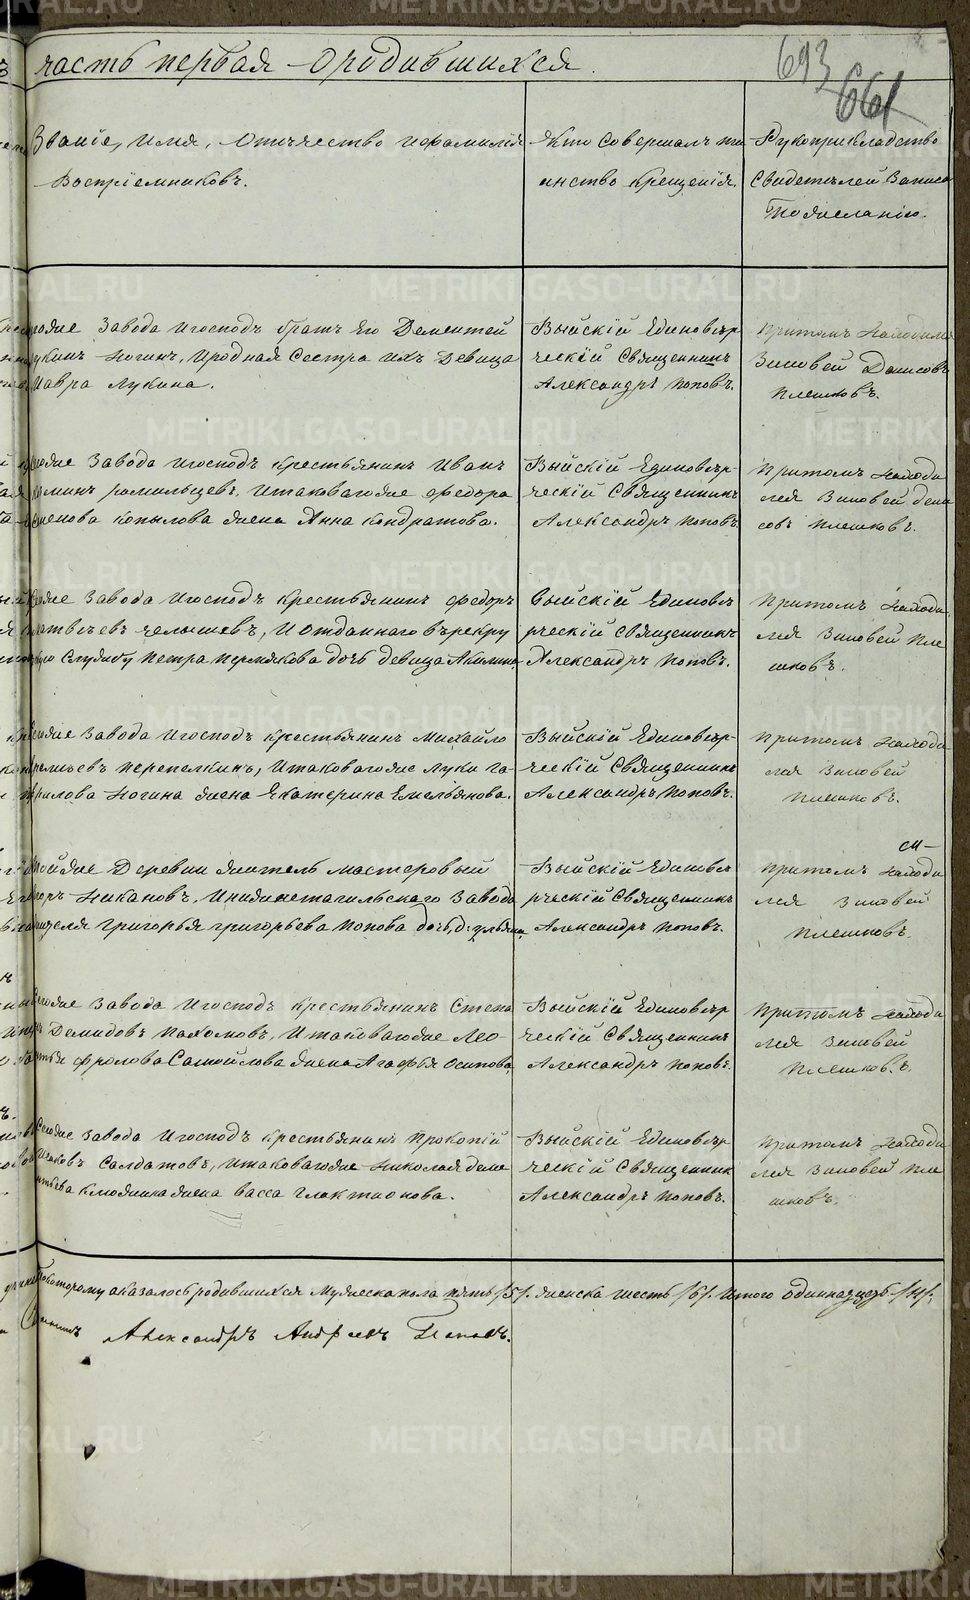 часть первая О родившихся.
693
661
Званіе, Имя, Отичество и фамилія
Воспріемниковъ.
Кто совершалъ та
инство крещенія.
Рукоприкладство
Свидетелей Записи
По желанію.
завода и господъ братъ Его Дементей
Лукинъ Ногинъ, и родная Сестра ихъ Девица
Мавра Лукина.
Выйскій Единовѣр
ческій Священникъ
Александръ Поповъ.
При томъ Находился
Зиновей Денисовъ
Плешковъ.
завода и господъ крестьянинъ Иванъ
и таковагоже Федора
Копылова жена Анна Кондратова.
Выйскій Единовѣр-
ческій Священникъ
Александръ Поповъ
При томъ Находи
лся Зиновей Дени
совъ Плешковъ.
завода и господъ крестьянинъ Федоръ
Матвеевъ Челышевъ, и отданнаго въ рекру
службу Петра Пермякова дочь девица Акилина
Выйскій Единовѣ
рческій Священникъ
Александръ Поповъ.
При томъ Находи
лся Зиновей Пле
шковъ.
завода и господъ крестьянинъ Михайло
Перепелкинъ, и таковагоже Луки Га
врилова Ногина жена Екатерина Емельянова.
Выйскій Единовѣр-
ческій Священникъ
Александръ Поповъ.
При томъ Находи
лся Зиновей
Плешковъ.
Деревни житель мастеровый
Никановъ, и Нижнетагильскаго завода
жителя Григорья Григорьева Попова дочь,
Выйскій Единовѣ
рческій Священникъ
Александръ Поповъ.
При томъ Находи
лся Зиновей
Плешковъ.
завода и господъ крестьянинъ Степа
нъ Демидовъ Пахомовъ, и таковагоже Лео
нтья Фролова Самойлова жена Агафья Осипова
Выйскій Единовѣр
ческій Священникъ
Александръ Поповъ.
При томъ Находи
лся Зиновей
Плешковъ.
завода и господъ крестьянинъ Прокопій
Солдатовъ, и таковагоже Николая Деме
нтьева жена Васса Глактионова.
Выйскій Единовѣр
ческій Священник
Александръ Поповъ.
При томъ Находи
лся Зиновей Пле
шковъ.
По которому оказалось родившихся мужеска пола пять /5/. женска шесть /6/. Итого одиннадцать /11/.
Александръ Андреевъ Поповъ.
METRIKI.GASO-URAL.RU